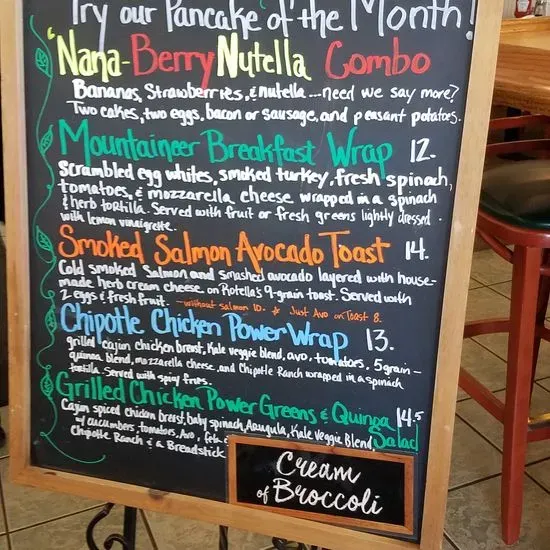 Try our Pancake of the Month!
'Nana-Berry Nutella Combo
Bananas, Strawberries, & nutella ... need we say more?
Two cakes, two eggs, bacon or sausage, and peasant potatoes.
Mountaineer Breakfast Wrap 12.
Scrambled egg whites, smoked turkey, fresh spinach,
tomatoes, & mozzarella cheese wrapped in a spinach
& herb tortilla. Served with fruit or fresh greens lightly dressed
with lemon vinaigrette.
Smoked Salmon Avocado Toast 14.
Cold smoked Salmon and smashed avocado layered with house-
made herb cream cheese on Rotella's 9-grain toast. Served with
2 eggs & fresh fruit. - without salmon 10. ☆ Just Avo on Toast 8.
Chipotle Chicken Power Wrap 13.
grilled cajun chicken breast, Kale veggie blend, avo, tomatoes, 5 grain-
quinoa blend, mozzarella cheese, and Chipotle Ranch wrapped in a spinach
tortilla. Served with spicy fries.
Grilled Chicken Power Greens & Quinoa 14.5
Salad
Cajun spiced chicken breast, baby spinach, Arugula, Kale Veggie Blend,
w/ cucumbers, tomatoes, Avo, feta &
Chipotle Ranch & a Breadstick
Cream
of Broccoli